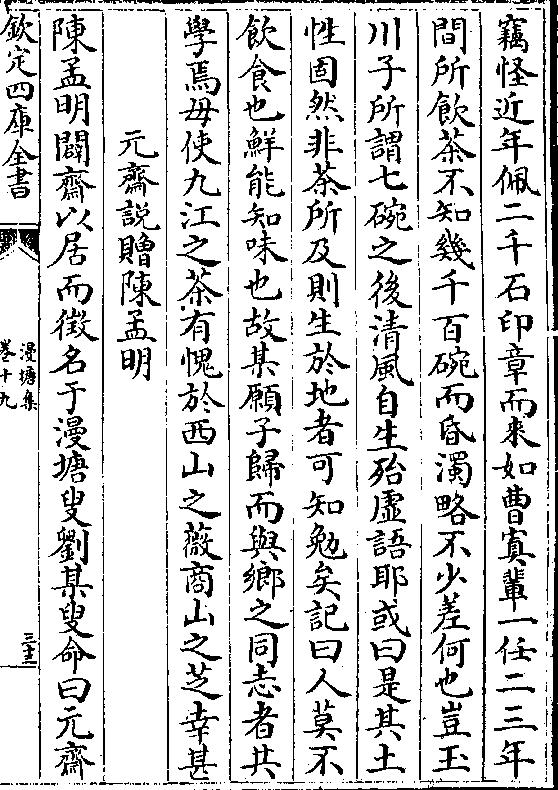 竊怪近年佩二千石印章而來如曹寘輩一任二三年
間所飲茶不知幾千百碗而昏濁略不少差何也豈玉
川子所謂七碗之後清風自生殆虛語耶或曰是其土
性固然非茶所及則生於地者可知勉矣記曰人莫不
飲食也鮮能知味也故其願子歸而與鄉之同志者共
學焉毋使九江之茶有愧於西山之薇商山之芝幸甚
元齋說贈陳孟明
陳孟明闢齋以居而徵名于漫塘叟劉某叟命曰元齋
欽定四庫全書
漫塘集
卷十九
三十三